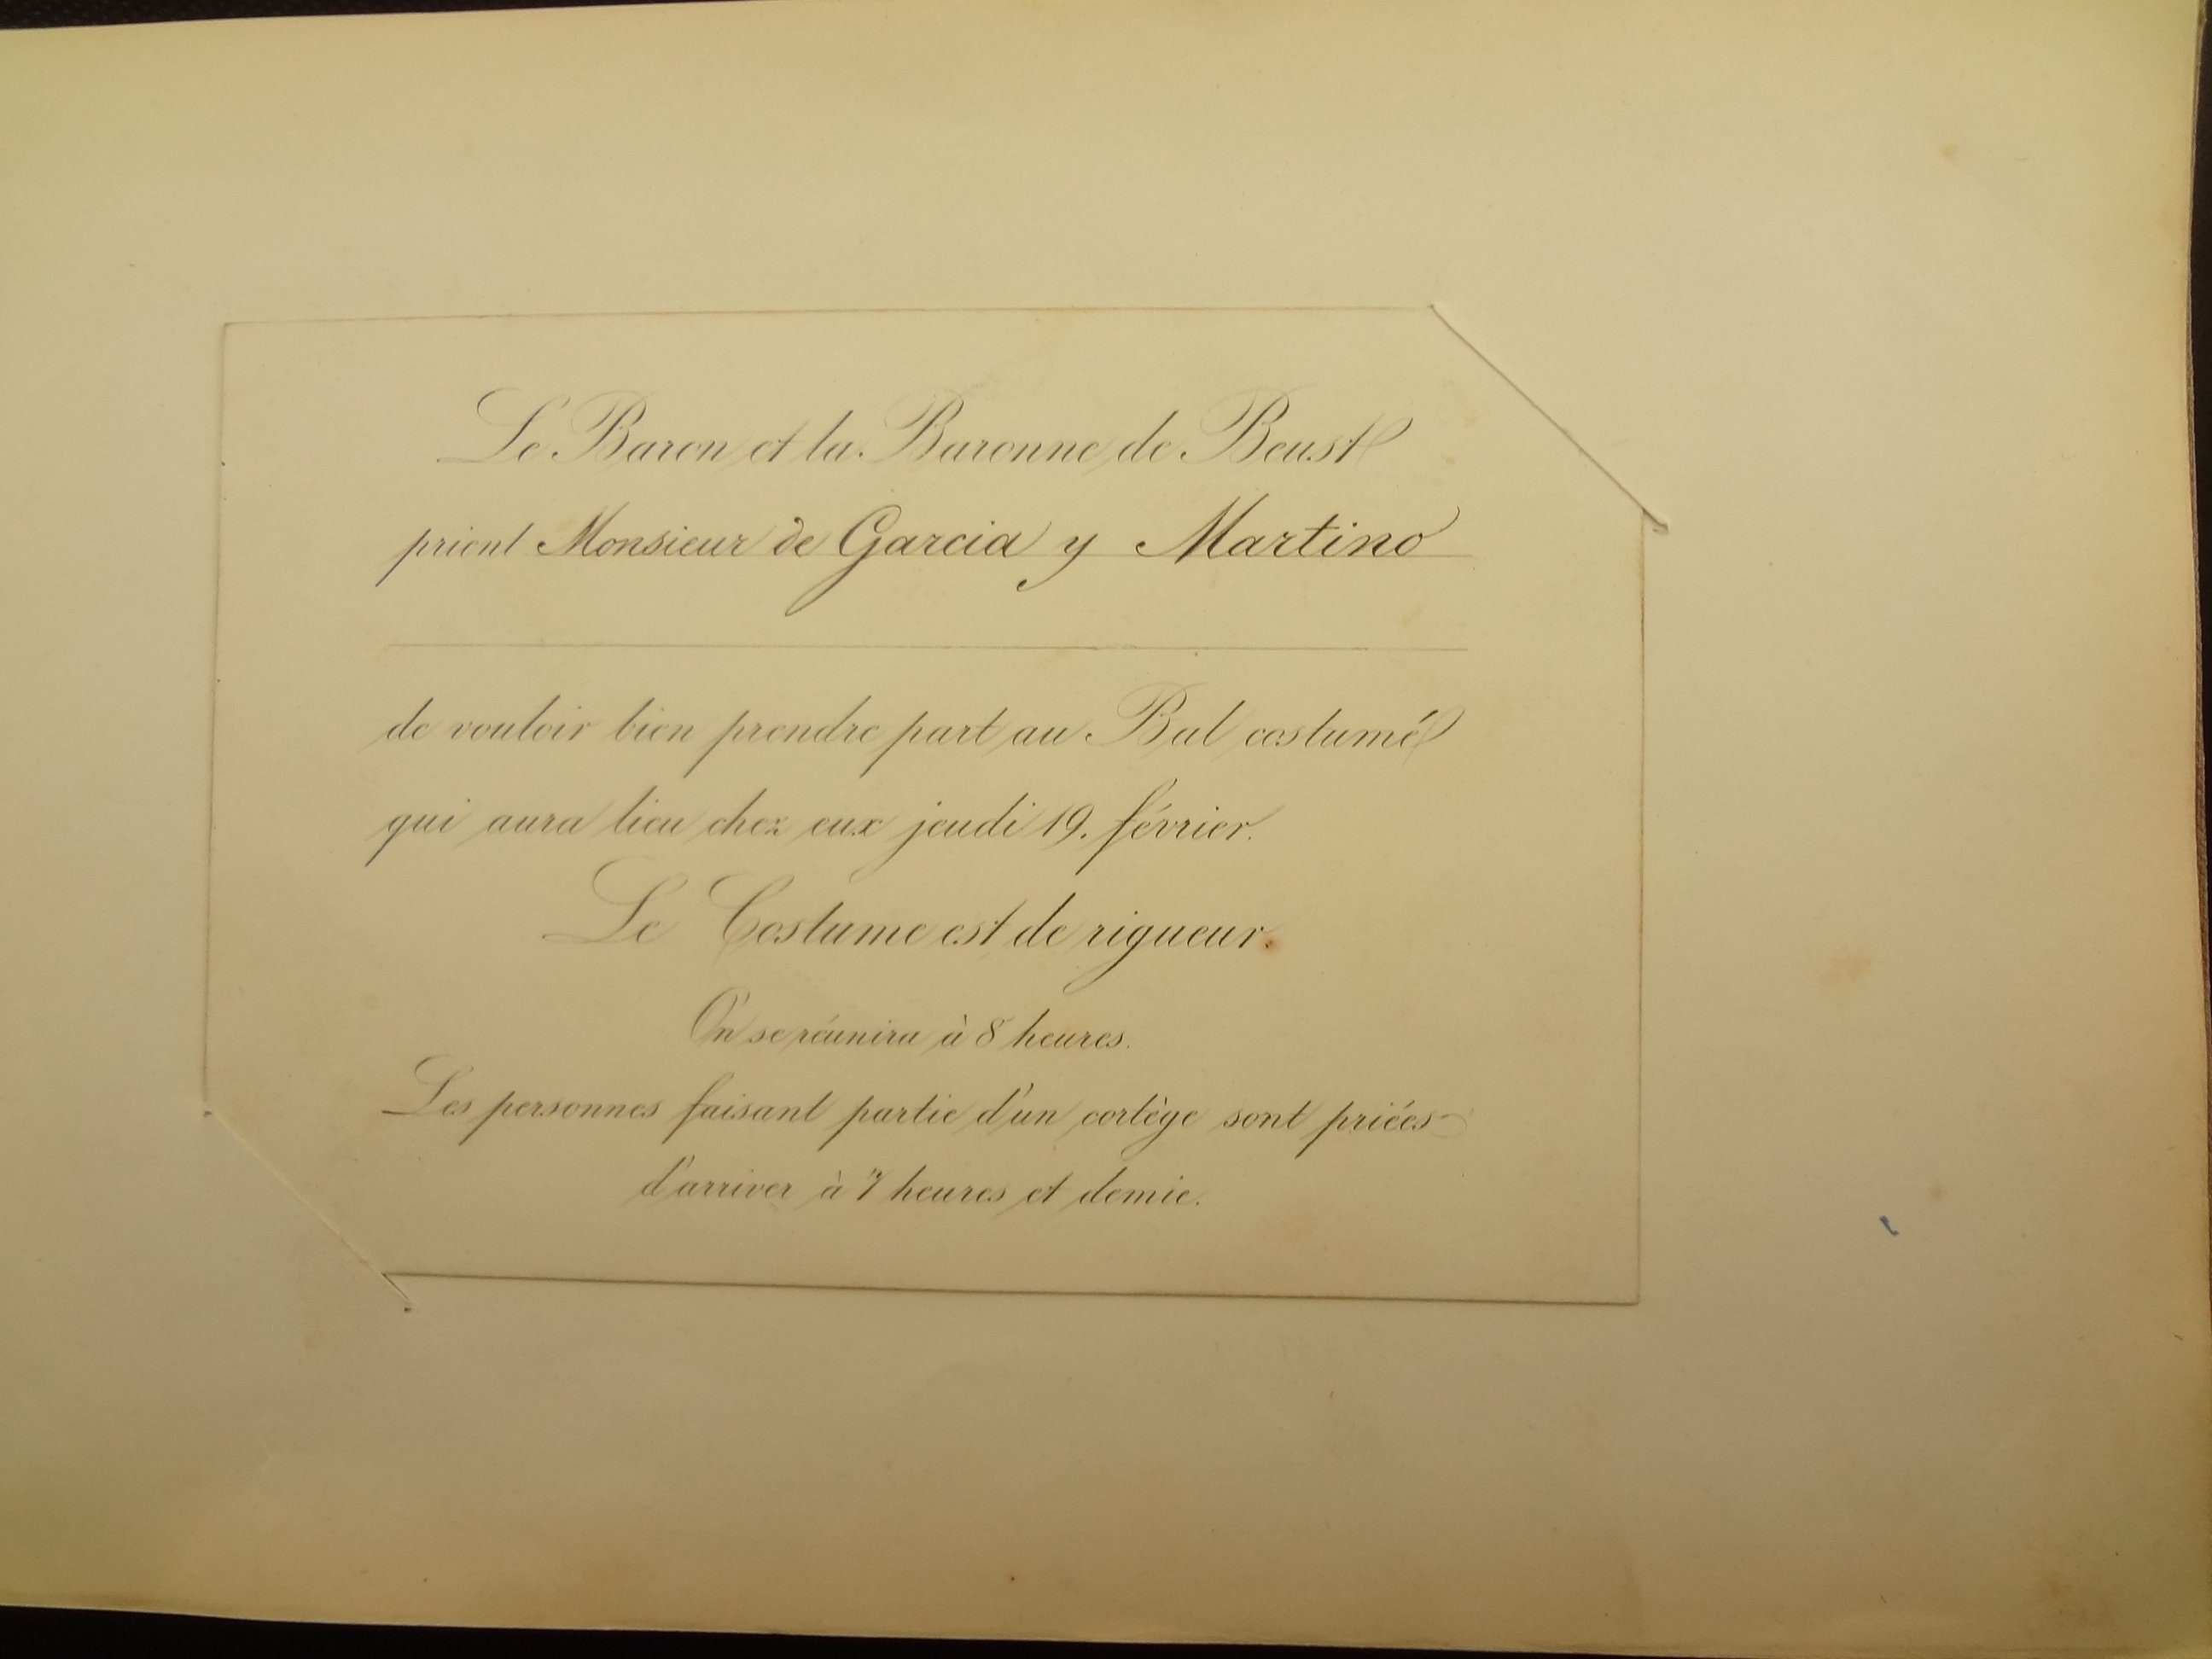 Le Baron et la Baronne de Beust
prient Monsieur de Garcia y Martino
de vouloir bien prendre part au Bal costumé
qui aura lieu chez eux jeudi 19. février.
Le Costume est de rigueur.
On se réunira à 8 heures.
Les personnes faisant partie d'un cortège sont priées
d'arriver à 7 heures et demie.